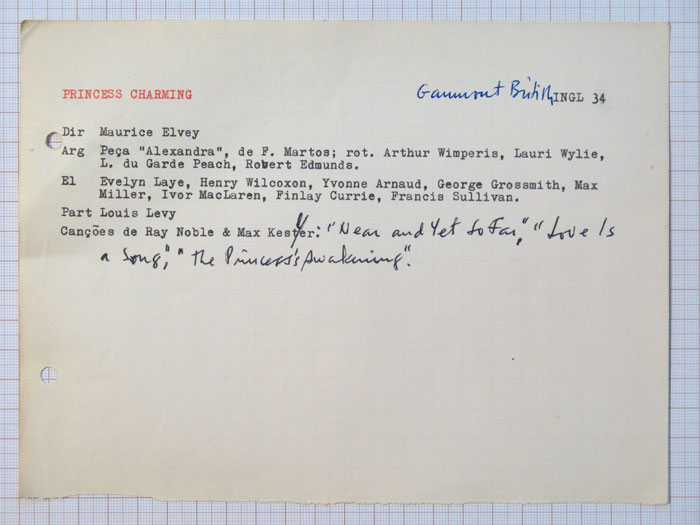 PRINCESS CHARMING Gaumont British INGL 34
Dir Maurice Elvey
Arg Peça "Alexandra", de F. Martos; rot. Arthur Wimperis, Lauri Wylie,
L. du Garde Peach, Robert Edmunds.
El Evelyn Laye, Henry Wilcoxon, Yvonne Arnaud, George Grossmith, Max
Miller, Ivor MacLaren, Finlay Currie, Francis Sullivan.
Part Louis Levy
Canções de Ray Noble & Max Kester: "Near and Yet So Far," "Love Is
a Song," "the Princess's Awakening".